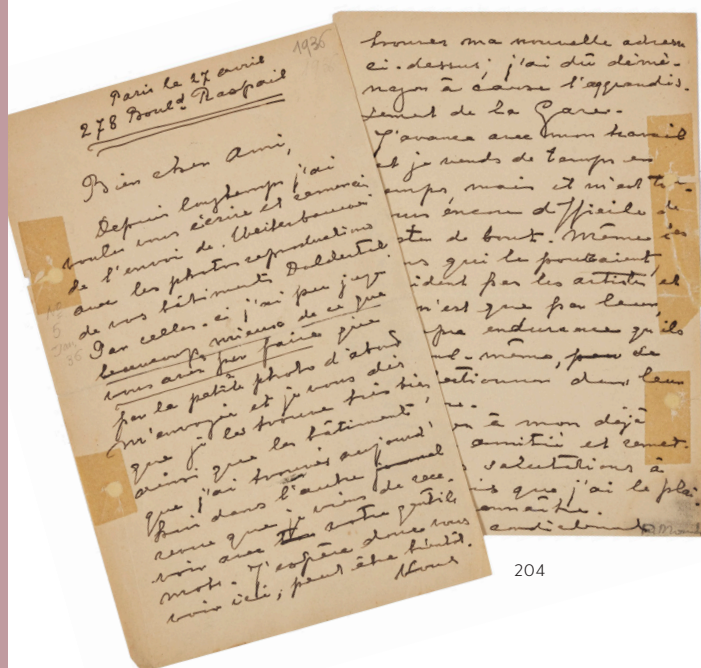 1936
Paris le 27 avril
278 Bould Raspail
Bien cher Ami,
Depuis longtemps j'ai
voulu vous écrire et
de l'envoi de Weiterbauen
avec les photos reproductions
de vos bâtiments Doldertal
Par celles-ci j'ai pu juger
beaucoup mieux de ce que
vous avez pu faire que
par la petite photo d'abord
m'envoyée et je vous dis
que je les trouve très bien
ainsi que les bâtiments,
que j'ai trouvés aujourd'
hui dans l'autre
revue que je viens de rece-
voir avec votre gentil
mot. J'espère donc vous
voir ici, peut être bientôt.
Vous
trouvez ma nouvelle adresse
ci-dessus; j'ai dû démé-
nager à cause l'agrandis-
sement de la Gare.
J'avance avec mon travail
et je vends de temps en
emps mais il m'est to-
urs encore difficile de
de bout. Même les
ns qui le pouvaient,
ident pas les artistes et
n'est que par leur
pre endurance qu'ils
même, peu de
ectionner dans leur
re.
à mon déjà
amitié et remet-
salutations à
is que j'ai le plai-
onnaître.
cordialement
204